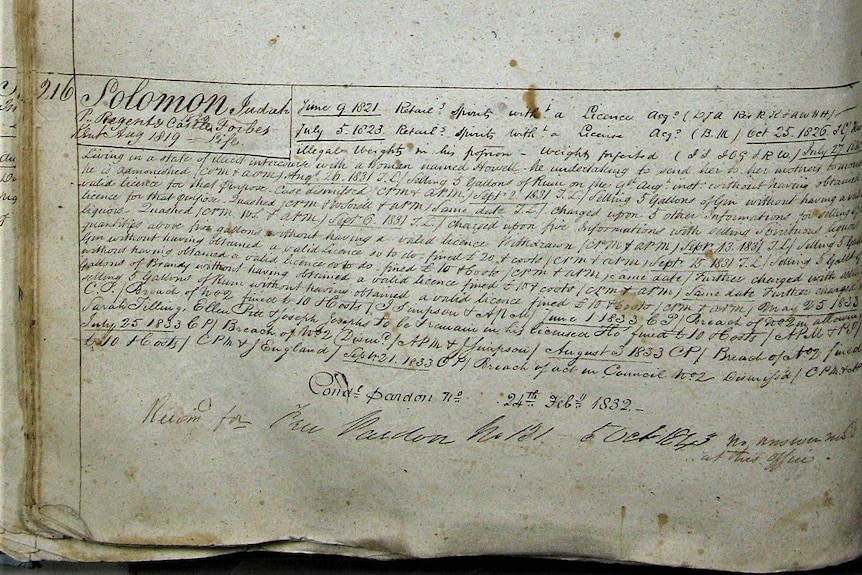 216 Solomon Judah
P. Regent & Castle Forbes
Aug 1819 - Life
June 9 1821 Retailg Spirits witht a Licence Acqd (D J A
July 5 1823 Retailg Spirits witht a License Acqd (B.M) Oct 25. 1826
illegal Weights in his posson - Weights forfeited July 27
Living in a state of illicit intercourse with a Woman named Howell - he undertaking to send her to her mothers to morrow
he is admonished / CPM & APM / Augt 26. 1831 T.L / Selling 5 Gallons of Rum on the 9th Augt inst. without having obtained
valid licence for that purpose. Case dismissed / CPM & APM / Sept 2 1831 T.L / Selling 5 Gallons of Gin without having a valid
licence for that purpose Quashed / CPM & APM / Same date T.L / charged upon 5 other Informations for selling
liquors. Quashed / CPM & APM / Sept 6. 1831 T.L / charged upon five Informations with selling Spirituous liquors
quantities above five gallons without having a valid licence Withdrawn / CPM & APM / Sept 13. 1831 T.L / Selling 5 Gall
Gin without having obtained a valid licence so to do fined £20 & costs / CPM & APM / Sept 15 1831 T.L / Selling 5 Gall
without having obtained a valid licence so to do fined £10 & Costs / CPM & APM / Same date / Further charged with selling
Gallons of Brandy without having obtained a valid licence fined £10 & costs / CPM & APM / Same date Further charged
selling 5 Gallons of Rum without having obtained a valid licence fined £10 & Costs / CPM & APM / May 25 1833
C.P / Breach of No 2 fined £10 & Costs / J Simpson & APM / June 1 1833 C P / Breach of No 2 in allowing
Sarah Tilling, Ellen Pitt & Joseph Josephs to be & remain in his licensed Ho fined £10 & Costs / APM &
July 25 1833 C P / Breach of No 2 Dismd / APM & J Simpson / August 3 1833 C P / Breach of No 2 fined
£10 & Costs / CPM & J England / Sept 21. 1833 C P / Breach of act in Council No 2 Dismissed / CPM &
Condl Pardon No 24th Feby 1832 -
Recomd for Free Pardon No 131 5 Oct 1843 no answer
at this office